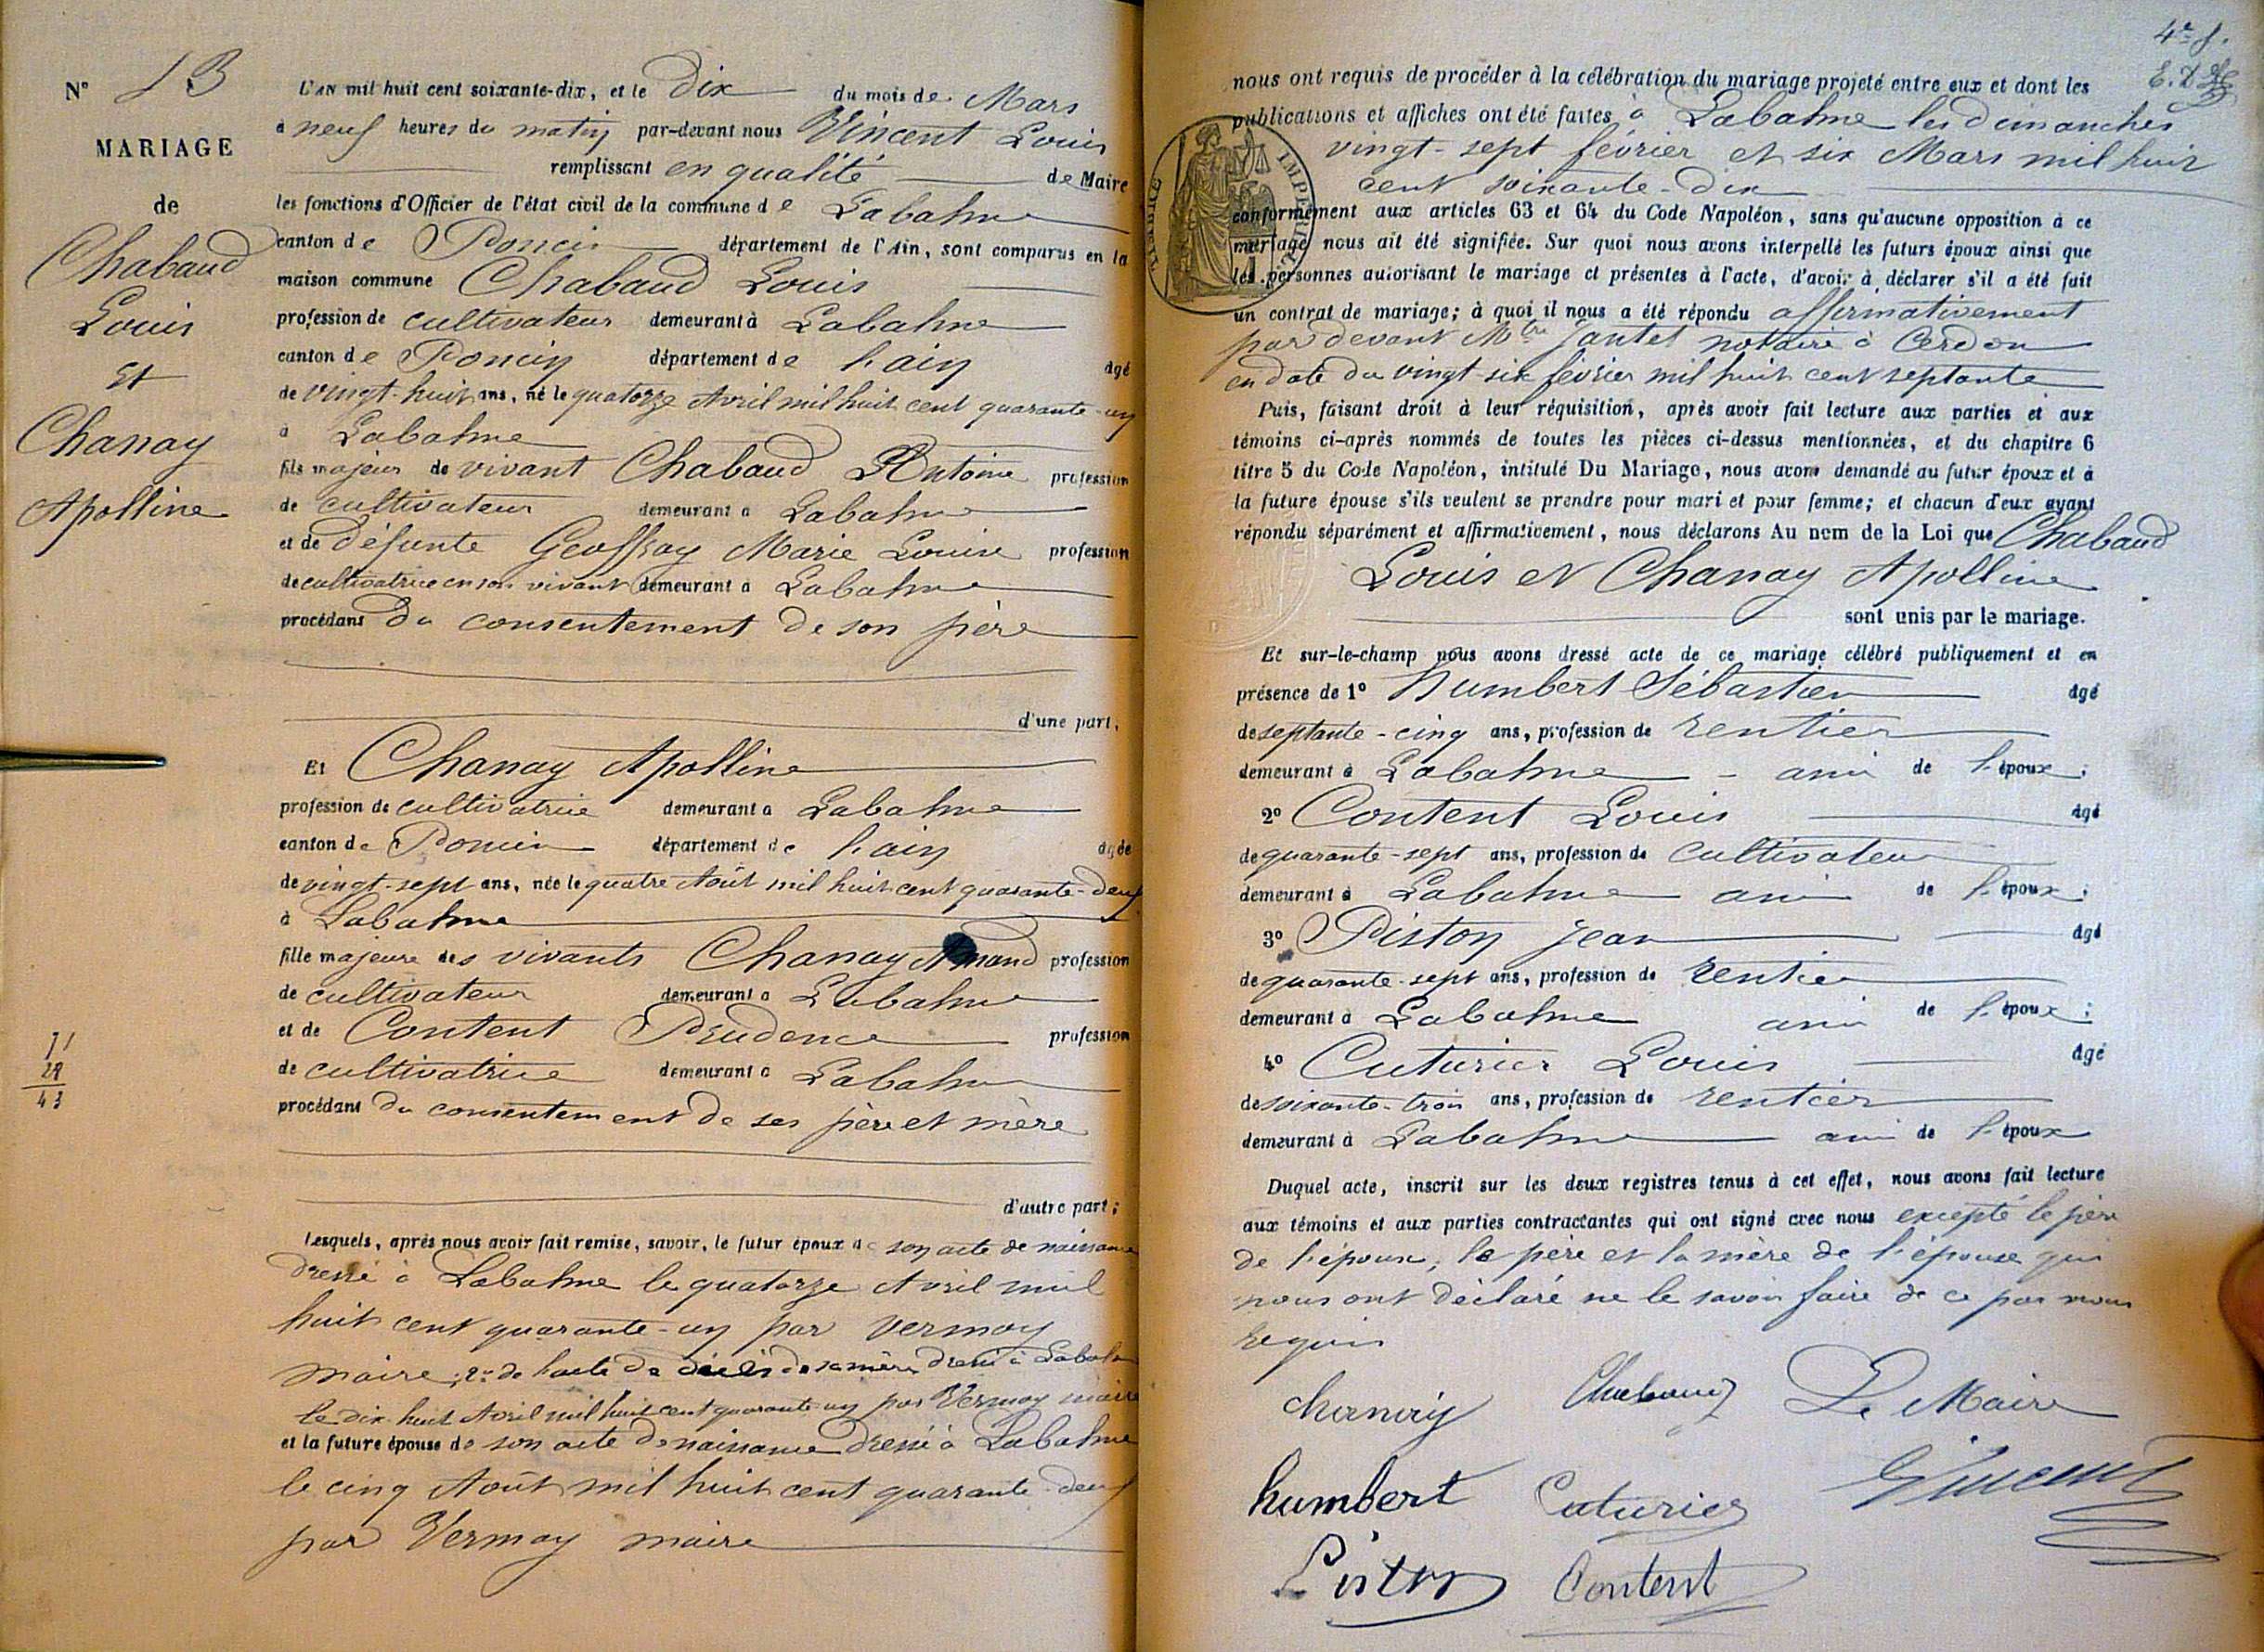 N° 13
MARIAGE
de
Chabaud
Louis
Et
Chanay
Apolline
71
28
43
L'AN mil huit cent soixante-dix, et le dix du mois de Mars
à neuf heures du matin par-devant nous Vincent Louis
remplissant en qualité de Maire
les fonctions d'Officier de l'état civil de la commune de Labalme
canton de Poncin département de l'Ain, sont comparus en la
maison commune Chabaud Louis
profession de cultivateur demeurant à Labalme
canton de Poncin département de l'ain âgé
de vingt-huit ans, né le quatorze Avril mil huit cent quarante-un
à Labalme
fils majeur de vivant Chabaud Antoine profession
de cultivateur demeurant à Labalme
et de défunte Geoffray Marie Louise profession
de cultivatrice en son vivant demeurant à Labalme
procédant du consentement de son père
d'une part,
Et Chanay Apolline
profession de cultivatrice demeurant à Labalme
canton de Poncin département de l'ain âgée
de vingt-sept ans, née le quatre Août mil huit cent quarante-deux
à Labalme
fille majeure des vivants Chanay profession
de cultivateur demeurant à Labalme
et de Content Prudence profession
de cultivatrice demeurant à Labalme
procédant du consentement de ses père et mère
d'autre part;
Lesquels, après nous avoir fait remise, savoir, le futur époux de son acte de naissance
dressé à Labalme le quatorze Avril mil
huit cent quarante-un par Vermay
maire; 2° de l'acte de décès de sa mère dressé à Labalme
le dix-huit Avril mil huit cent quarante-un par Vermay maire
et la future épouse de son acte de naissance dressé à Labalme
le cinq Août mil huit cent quarante-deux
par Vermay maire
4e f.
TIMBRE IMPERIAL
nous ont requis de procéder à la célébration du mariage projeté entre eux et dont les
publications et affiches ont été faites à Labalme les dimanches
vingt-sept février et six Mars mil huit
cent soixante-dix
conformément aux articles 63 et 64 du Code Napoléon, sans qu'aucune opposition à ce
mariage nous ait été signifiée. Sur quoi nous avons interpellé les futurs époux ainsi que
les personnes autorisant le mariage et présentes à l'acte, d'avoir à déclarer s'il a été fait
un contrat de mariage; à quoi il nous a été répondu affirmativement
par devant Mtre Jantet notaire à Cerdon
en date du vingt-six février mil huit cent septante
Puis, faisant droit à leur réquisition, après avoir fait lecture aux parties et aux
témoins ci-après nommés de toutes les pièces ci-dessus mentionnées, et du chapitre 6
titre 5 du Code Napoléon, intitulé Du Mariage, nous avons demandé au futur époux et à
la future épouse s'ils veulent se prendre pour mari et pour femme; et chacun d'eux ayant
répondu séparément et affirmativement, nous déclarons Au nom de la Loi que Chabaud
Louis et Chanay Apolline
sont unis par le mariage.
Et sur-le-champ nous avons dressé acte de ce mariage célébré publiquement et en
présence de 1° Humbert Sébastien âgé
de septante-cinq ans, profession de rentier
demeurant à Labalme ami de l'époux;
2° Content Louis âgé
de quarante-sept ans, profession de cultivateur
demeurant à Labalme ami de l'époux;
3° Piston Jean âgé
de quarante-sept ans, profession de rentier
demeurant à Labalme ami de l'époux;
4° Cuturier Louis âgé
de soixante-trois ans, profession de rentier
demeurant à Labalme ami de l'époux
Duquel acte, inscrit sur les deux registres tenus à cet effet, nous avons fait lecture
aux témoins et aux parties contractantes qui ont signé avec nous excepté le père
de l'époux, le père et la mère de l'épouse qui
nous ont déclaré ne le savoir faire de ce par nous
requis
chanay Chabaud Le Maire
humbert Cuturier Vincent
Piston Content